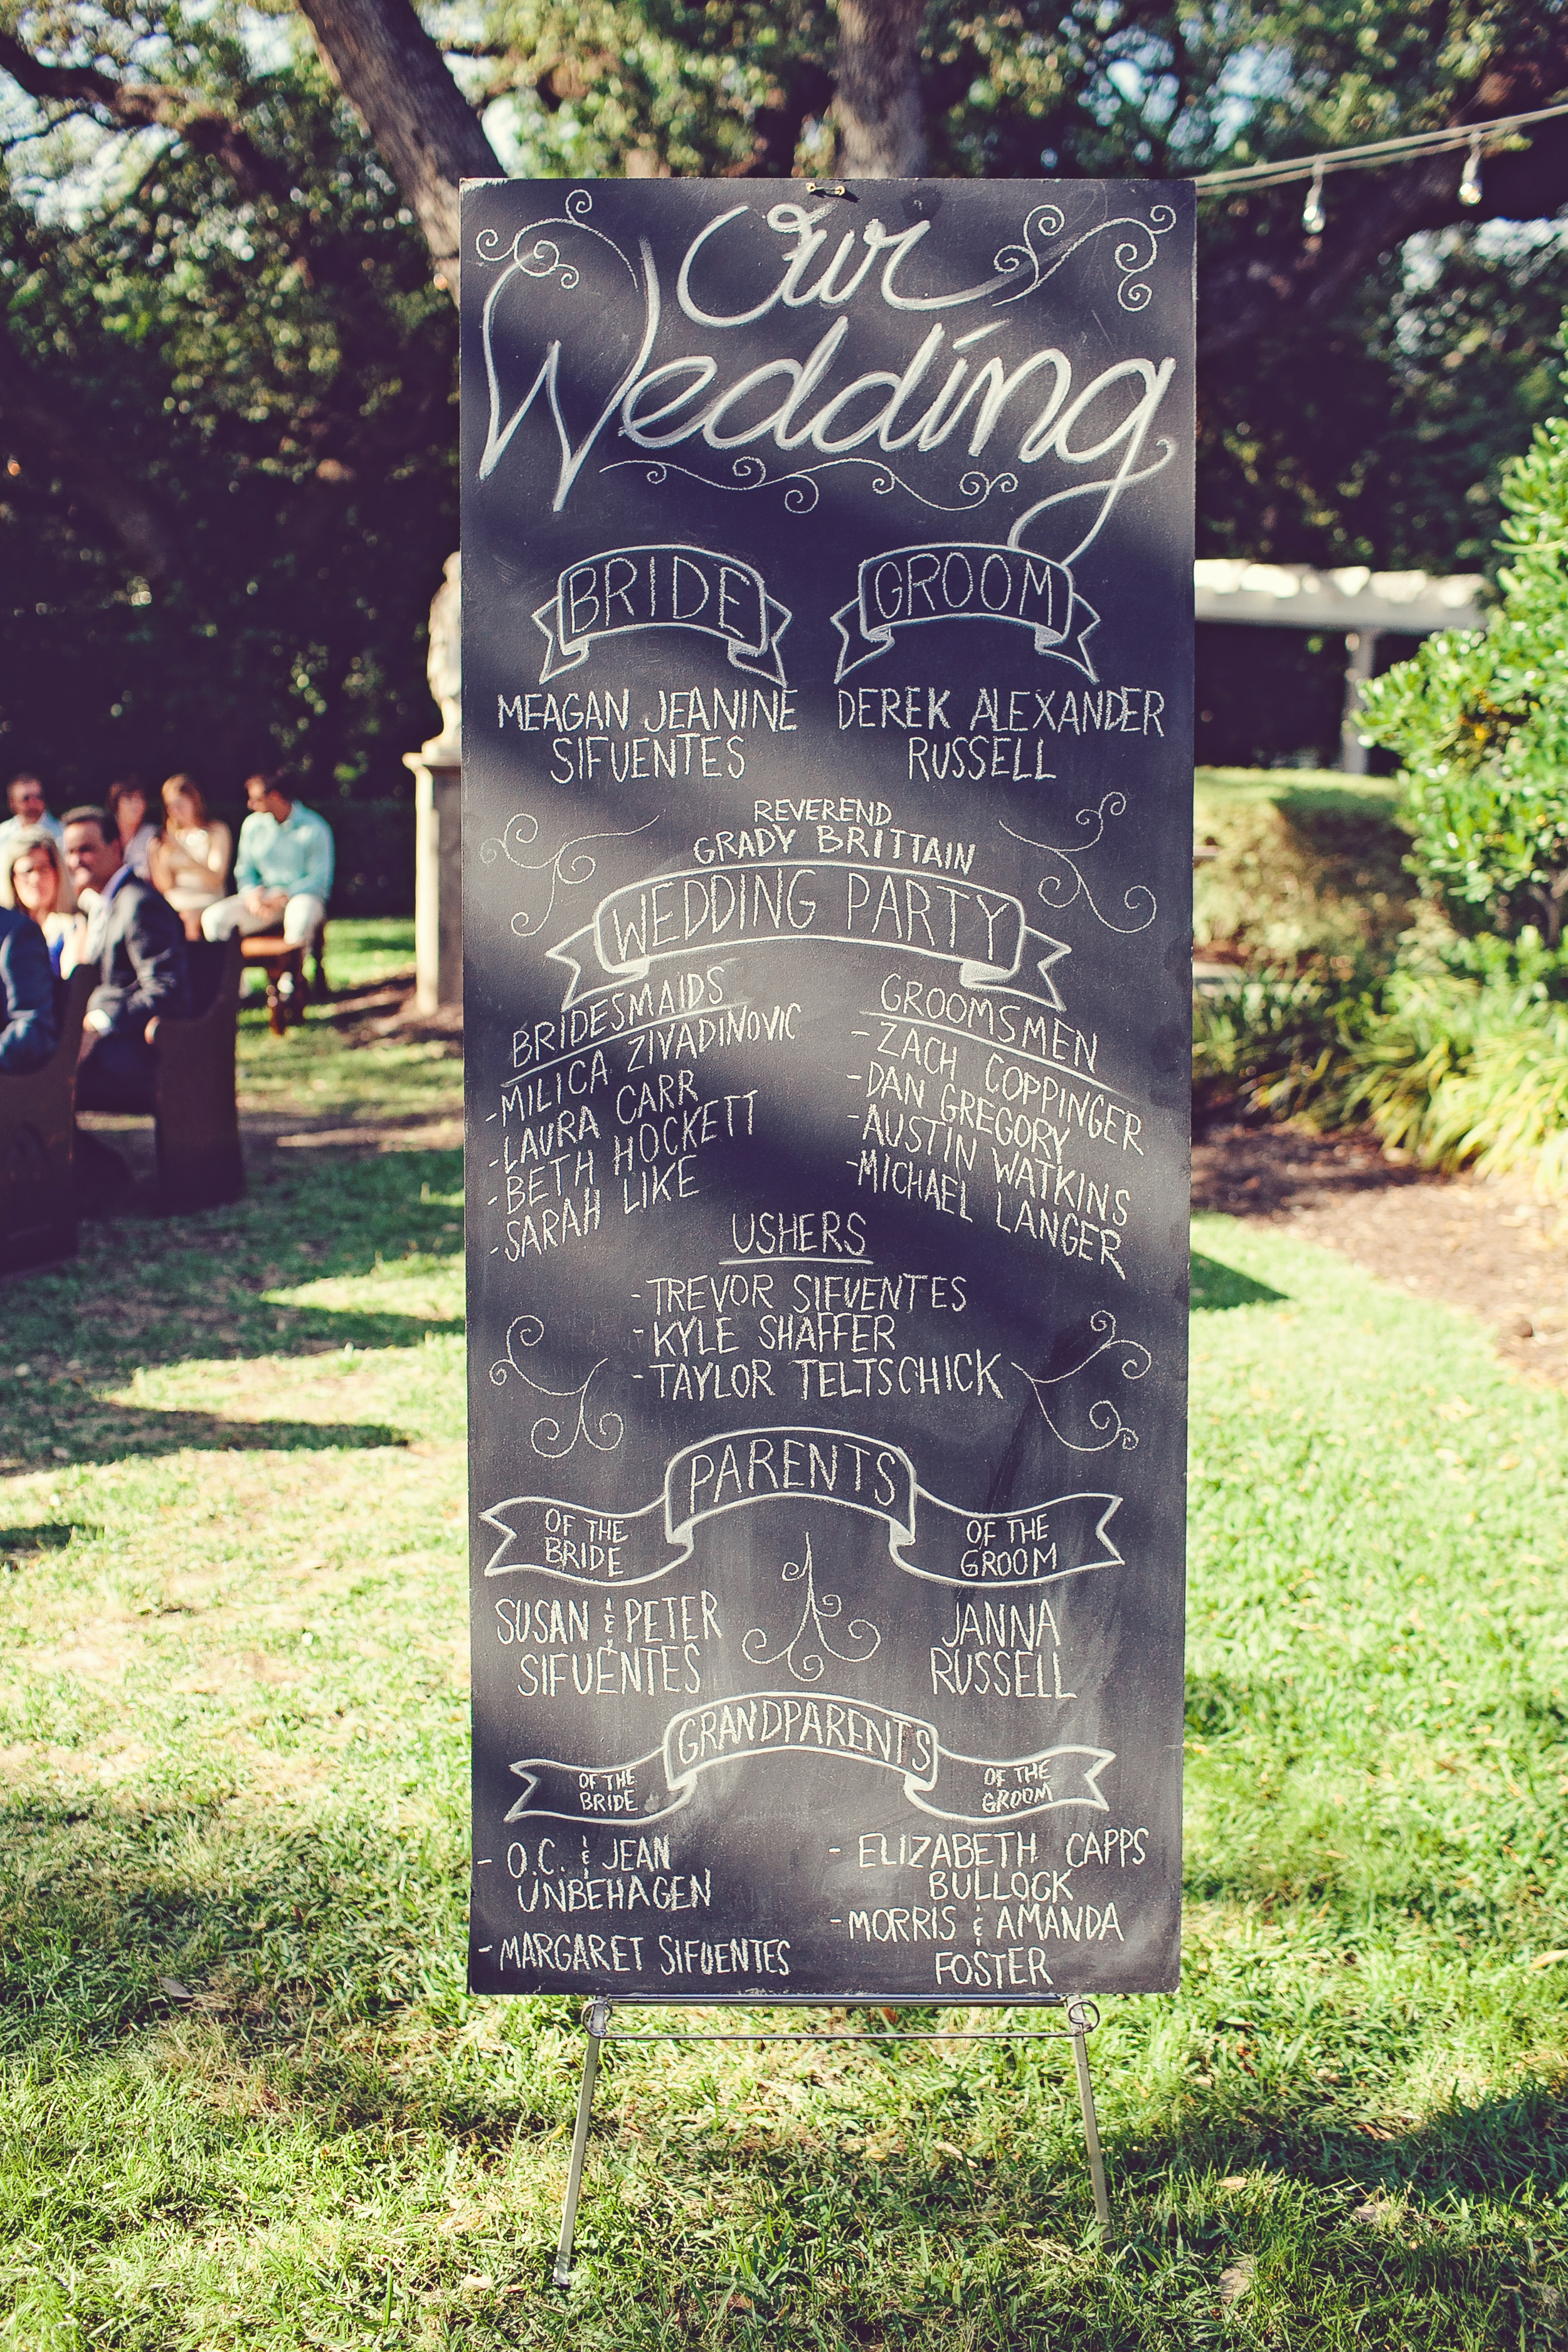 Our
Wedding
BRIDE
MEAGAN JEANINE
SIFUENTES
GROOM
DEREK ALEXANDER
RUSSELL
REVEREND
GRADY BRITTAIN
WEDDING PARTY
BRIDESMAIDS
-MILICA ZIVADINOVIC
-LAURA CARR
-BETH HOCKETT
-SARAH LIKE
GROOMSMEN
-ZACH COPPINGER
-DAN GREGORY
-AUSTIN WATKINS
-MICHAEL LANGER
USHERS
-TREVOR SIFUENTES
-KYLE SHAFFER
-TAYLOR TELTSCHICK
PARENTS
OF THE
BRIDE
SUSAN & PETER
SIFUENTES
OF THE
GROOM
JANNA
RUSSELL
GRANDPARENTS
OF THE
BRIDE
- O.C. & JEAN
UNBEHAGEN
-MARGARET SIFUENTES
OF THE
GROOM
- ELIZABETH CAPPS
BULLOCK
-MORRIS & AMANDA
FOSTER